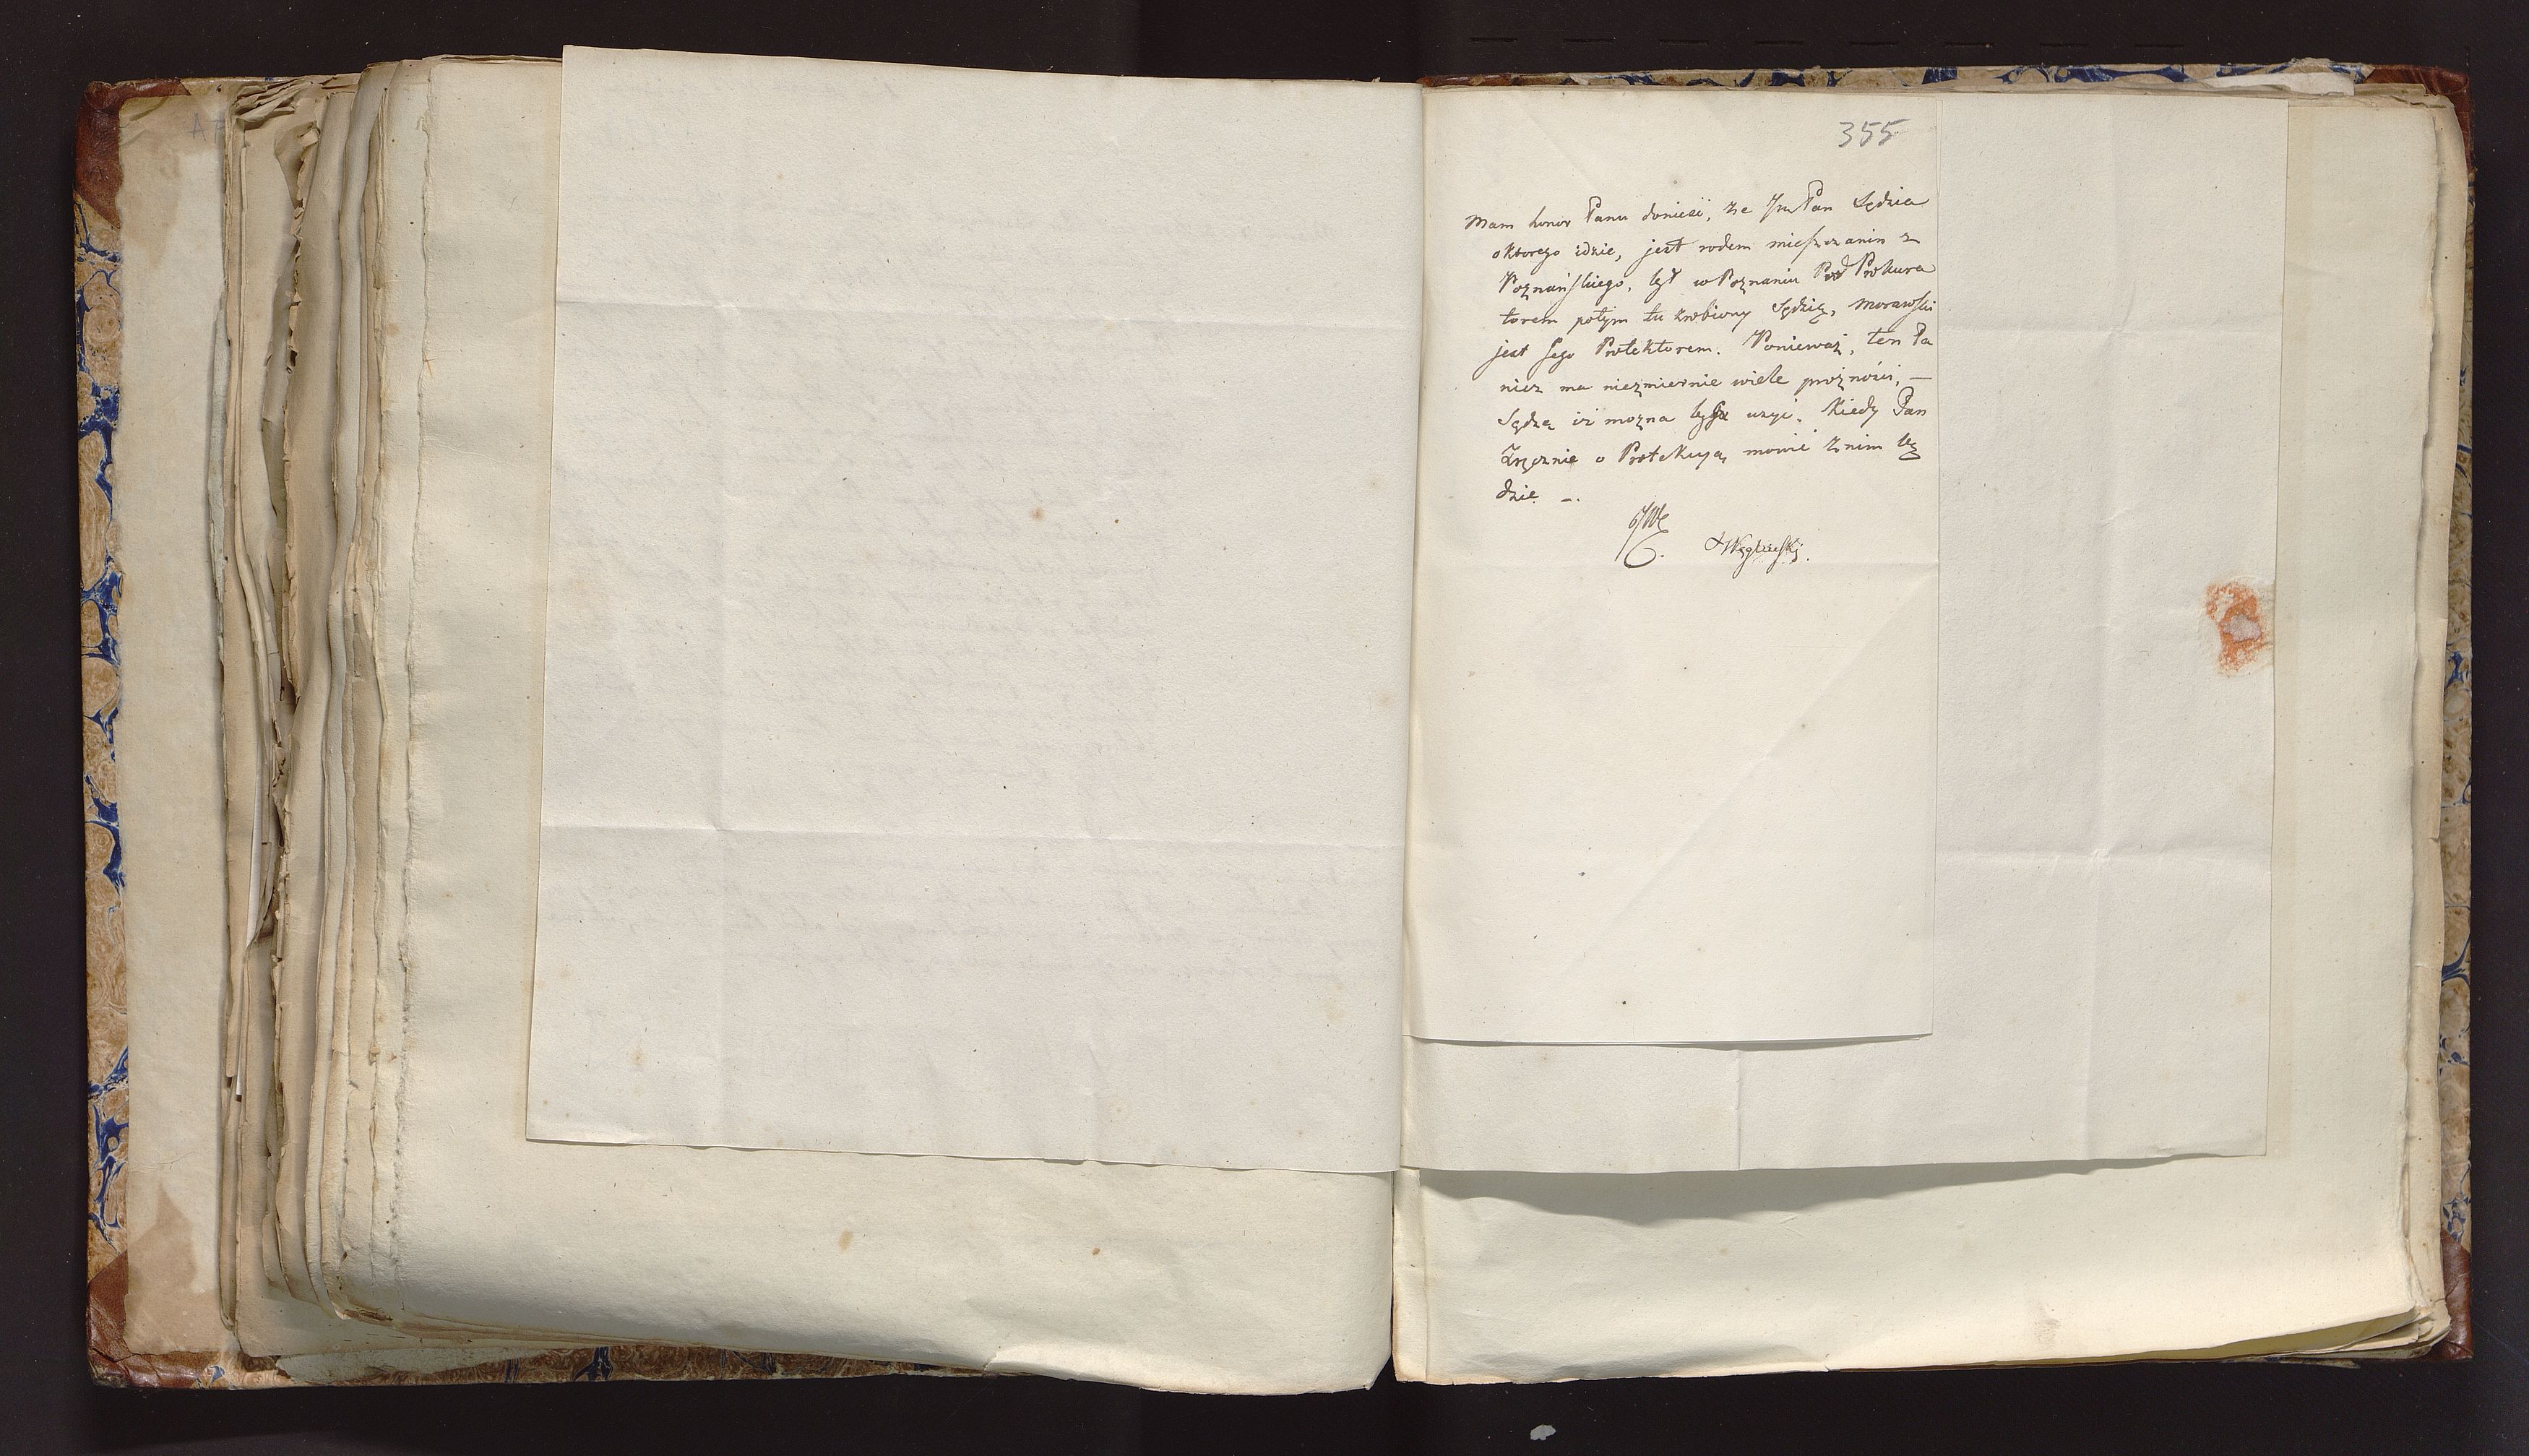 355
Mam honor Panu donieść, że Jm Pan Sędzia
o ktorego idzie, jest rodem mieszczanin z
Poznańskiego, był w Poznaniu Pod Prokura
torem potym tu zrobiony Sędzią, Morawski
jest Jego Protektorem. Ponieważ, ten Pa
nicz ma niezmiernie wiele prożności, —
Sądzę iż można by użyć. Kiedy Pan
Zręcznie o Protekcyą mówić z nim bę
dzie —.
Węgliński.